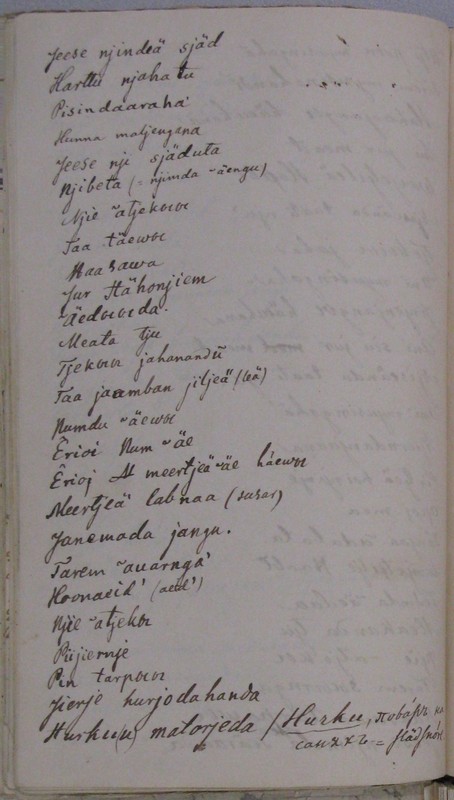 Jeese njindeä sjäd
Harttu njahatu
Pisindaaraha
Hunna maljengana
Jeese nji sjäduta
Njibeta (= njimda ~äengu)
Njie ~atjekοσ
Taa täewσ
Maasawa
Jur Hähonjiem
~äedσσda.
Meata tju
Tjekσσ jahanandu
Taa jaamban jiljeä (leä)
Numdu ~äewσ
Êrioi Num ~äe
Êrioj meertjeä ~äe häewσ
Meertjeä labnaa (sarar)
Janemada jangu.
Tarem ~auarnga'
Hoonaeid' (aeid')
Njie ~atjekσ
Püjiernje
Pin tarpσσ
Jierje hurjodahanda
Hurku(u) matorjeda / Hurku,